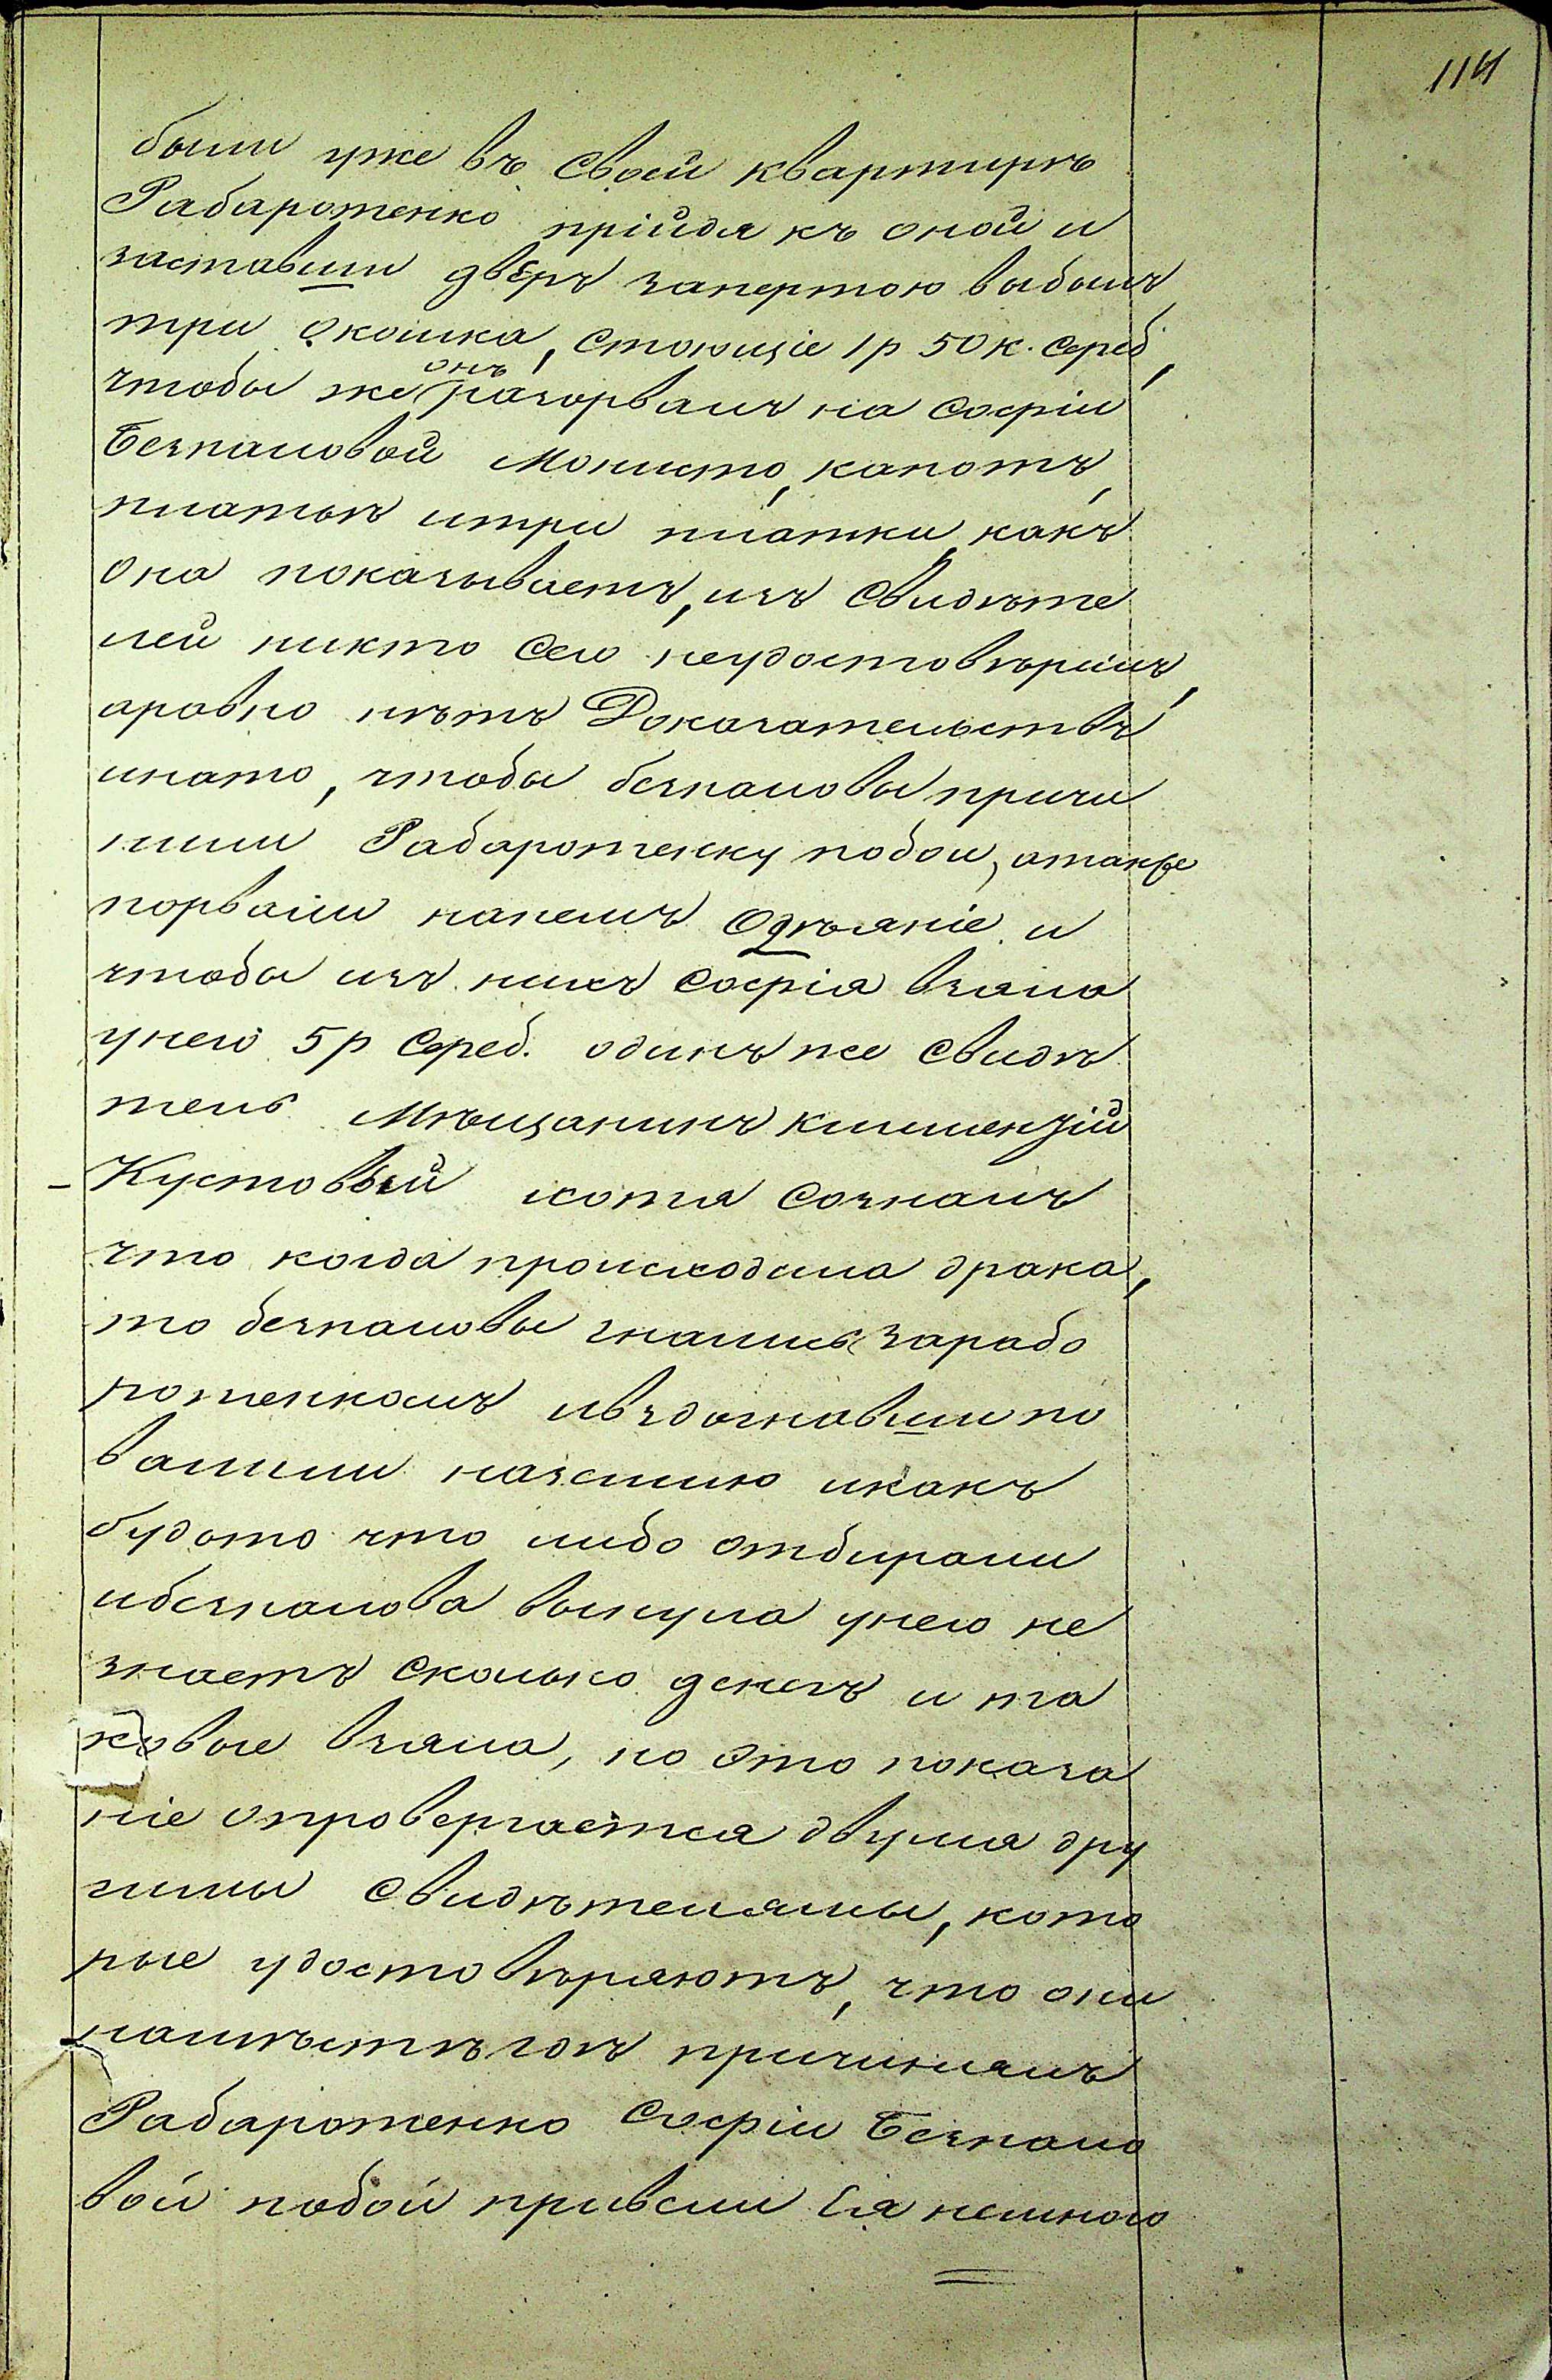 114
были уже въ своей квартирѣ
Рабаротенко прійдя къ оной и
заставши дверъ запертою выбилъ
три окошка, стоющіе 1 р 50 к. сереб,
чтобы же онъ разорвалъ на Софіи
Безпаловой монисто, капотъ,
платье итри платки, какъ
она показываетъ, изъ свидѣте
лей никто сего неудостовѣрилъ,
аравно нѣтъ Доказательствъ
инато, чтобы безпаловы причи
нили Рабаротенку побои, атакже
порвали нанемъ одѣяніе и
чтобы изъ нихъ Софія взяла
унего 5 р сереб. одинъ же свидѣ
тель мѣщанинъ
Кустовый хотя созналъ
что когда происходила драка,
то безпаловы гнались зарабо
ротенкомъ ивздогнавши по
валили наземлю икакъ
будто что либо отбирали
ибезпалова вынула унего не
знаетъ сколько денегъ и та
ковые взяла, но это показа
ніе опровергается двумя дру
гимы свидѣтелямы, кото
рые удостовѣряютъ, что они
причинялъ
Рабаротенко Софіи Безпало
вой побои привели Ея немного